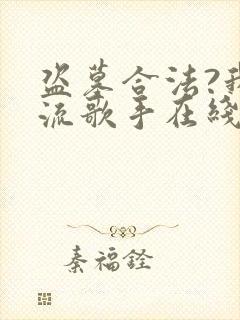 盗墓合法?我
流歌手在线
秦福铨